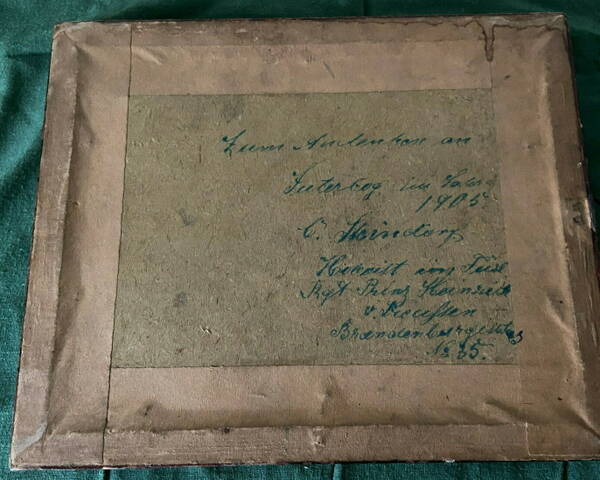 Zum Andenken an
Juterbog im Jahre
1905
C. Steindorf
Hoboist im Füsl
Rgt. Prinz Heinrich
v. Preußen
Brandenburgisches
No 35.